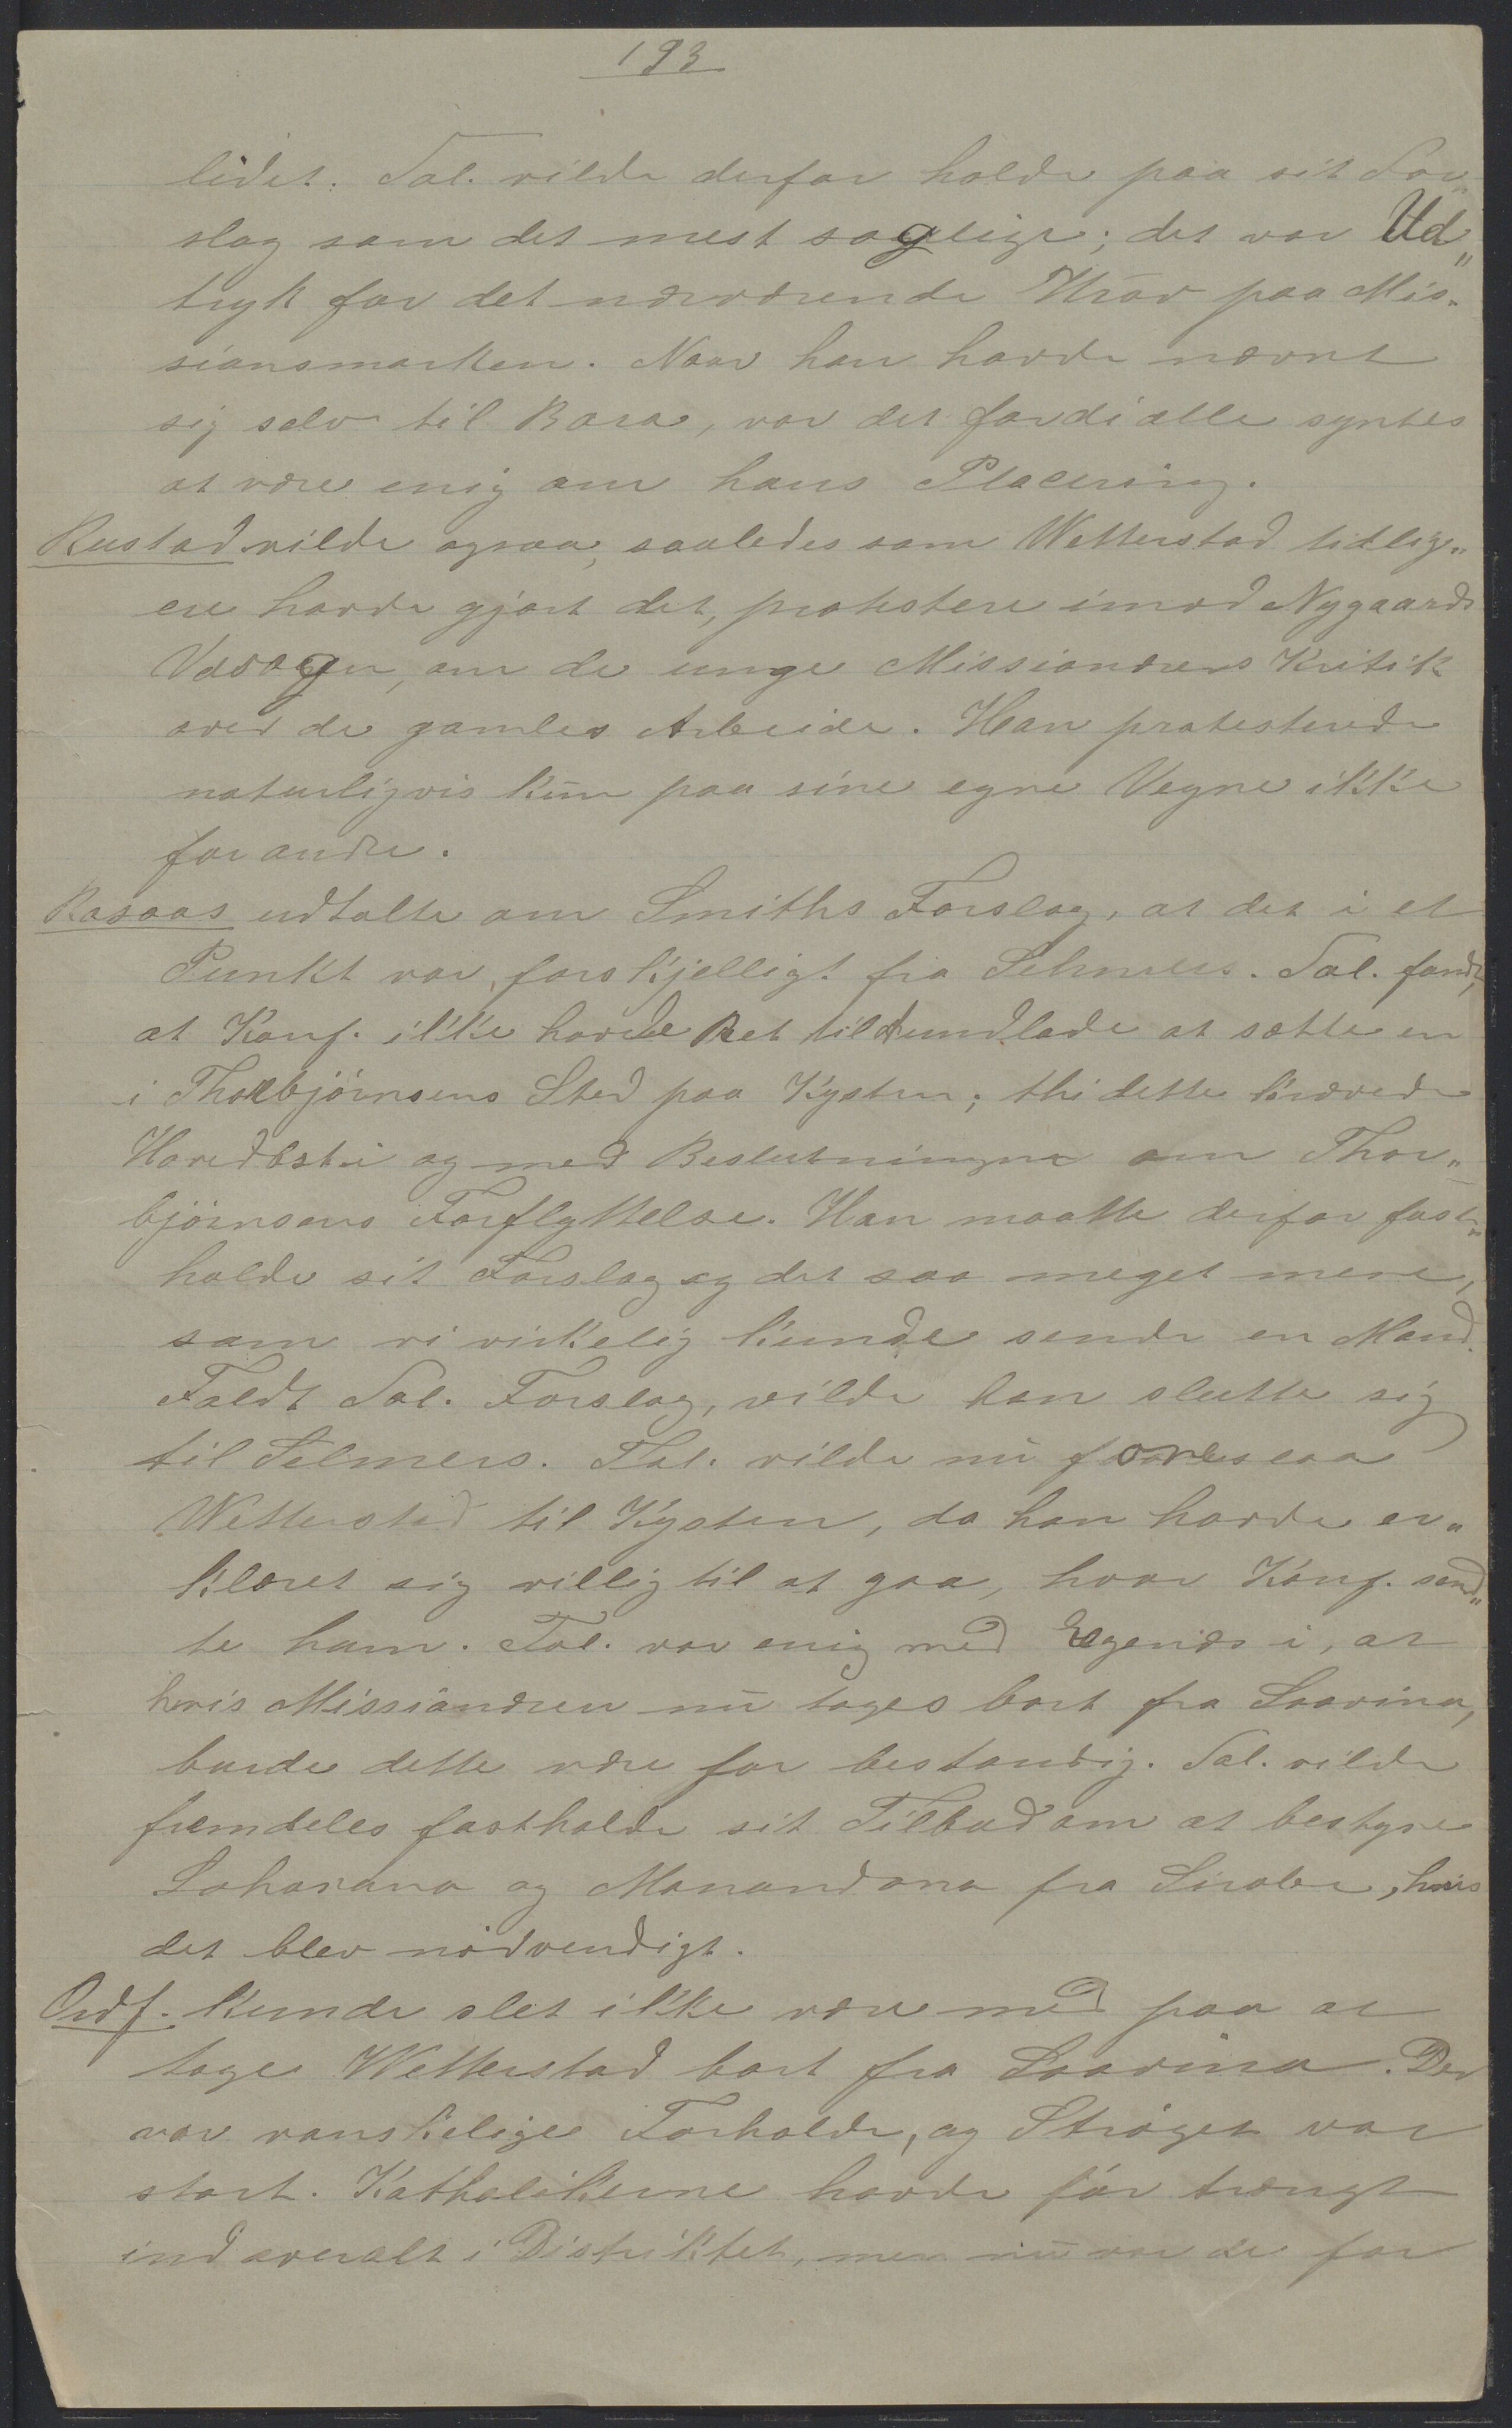 193
lidet. Tal. vilde derfor holde paa sit For„
slag som det mest saglige; det var Ud„
tryk for det nærværende Krav paa Mis„
sionsmarken. Naar han havde nævnt
sig selv til Bara, var det fordi alle syntes
at være enig om hans Placering.
Rustad vilde ogsaa, saaledes som Wetterstad tidlig„
ere havde gjort det, protestere imod Nygaards
om de unge Missionærers Kritik
over de gamles Arbeide. Han protesterede
naturligvis kun paa sine egne Vegne ikke
for andre.
Rosaas udtalte om Smiths Forslag, at det i et
Punkt var forskjelligt fra Selmers. Tal. fandt,
at Konf. ikke havde Ret til at undlade at sætte en
i Thorbjörnsens Sted paa Kysten; thi dette krævede
Hovedbst. i og med Beslutningen om Thor„
björnsens Forflyttelse. Han maatte derfor fast„
holde sit Forslag og det saa meget mere,
som vi virkelig kunde sende en Mand.
Faldt Tal. Forslag, vilde han slutte sig
til Selmers. Tal. vilde nu foreslaa
Wetterstad til Kysten, da han havde er„
klæret sig villig til at gaa, hvor Konf. send„
te ham. Tal. var enig med Egenæs i, at
hvis Missionæren nu toges bort fra Soavina,
burde dette være for bestandig. Tal. vilde
fremdeles fastholde sit Tilbud om at bestyre
Loharano og Manandona fra Sirabe, hvis
det blev nödvendigt.
Ordf. kunde slet ikke være med paa at
tage Wetterstad bort fra Soavina. Der
var vanskelige Forholde, og Ströget var
stort. Katholikerne havde för trængt
ind overalt i Distriktet, men nu var de for